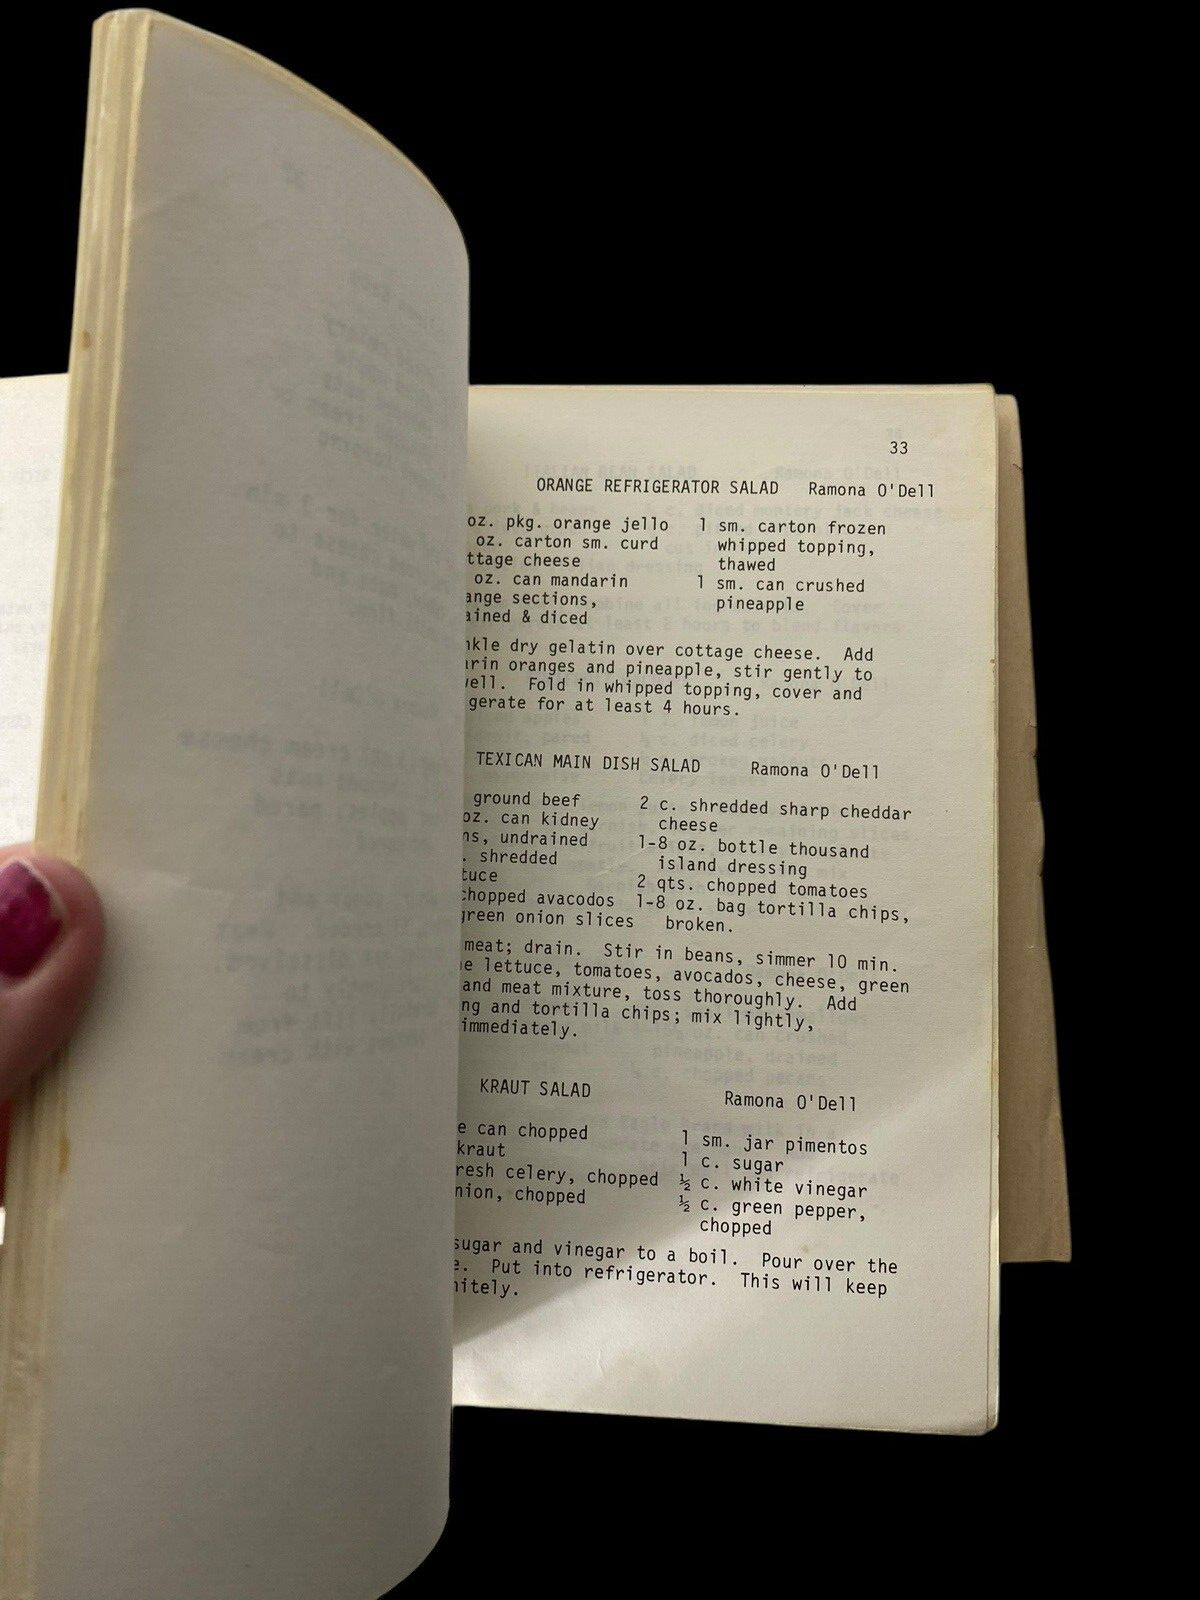 33
ORANGE REFRIGERATOR SALAD Ramona O'Dell
oz. pkg. orange jello 1 sm. carton frozen
oz. carton sm. curd whipped topping,
ttage cheese thawed
oz. can mandarin 1 sm. can crushed
ange sections, pineapple
ained & diced
nkle dry gelatin over cottage cheese. Add
arin oranges and pineapple, stir gently to
well. Fold in whipped topping, cover and
gerate for at least 4 hours.
TEXICAN MAIN DISH SALAD Ramona O'Dell
ground beef 2 c. shredded sharp cheddar
oz. can kidney cheese
ns, undrained 1-8 oz. bottle thousand
. shredded island dressing
tuce 2 qts. chopped tomatoes
chopped avacodos 1-8 oz. bag tortilla chips,
green onion slices broken.
meat; drain. Stir in beans, simmer 10 min.
e lettuce, tomatoes, avocados, cheese, green
and meat mixture, toss thoroughly. Add
ng and tortilla chips; mix lightly,
immediately.
KRAUT SALAD Ramona O'Dell
e can chopped 1 sm. jar pimentos
kraut 1 c. sugar
resh celery, chopped ½ c. white vinegar
nion, chopped ½ c. green pepper,
chopped
sugar and vinegar to a boil. Pour over the
e. Put into refrigerator. This will keep
nitely.